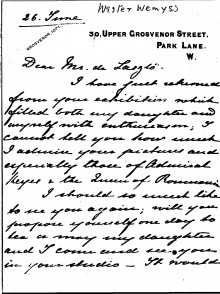 Wester Wemyss
26. June
GROSVENOR 1071.
30, UPPER GROSVENOR STREET,
PARK LANE.
W.
Dear Mr. de Laszlo.
I have just returned
from your exhibition which
filled both my daughter and
myself with enthusiasm; I
cannot tell you how much
I admire your pictures and
especially those of Admiral
Keyes & the Queen of Roumania
I should so much like
to see you again; will you
propose yourself one day to
tea or may my daughter
and I come and see you
in your studio – It would